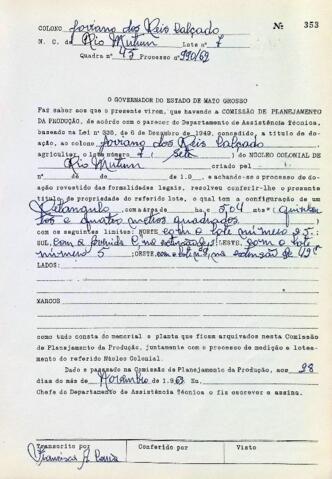 COLONO Joviano dos Reis Calçado Nº 353
N. C. de Rio Mutum Lote nº 7
Quadra nº 45 Processo nº 990/62
O GOVERNADOR DO ESTADO DE MATO GROSSO
Faz saber aos que o presente virem, que havendo a COMISSÃO DE PLANEJAMENTO
DA PRODUÇÃO, de acôrdo com o parecer do Departamento de Assistência Técnica,
baseado na Lei nº 336, de 6 de Dezembro de 1949, concedido, a título de do-
ação, ao colono, Joviano dos Reis Calçado
agricultor, o lote número 7 sete do NÚCLEO COLONIAL DE
Rio Mutum criado pel
nº de de 1.9 , e achando-se o processo de do-
ação revestido das formalidades legais, resolveu conferir-lhe o presente
título de propriedade do referido lote, o qual tem a configuração de um
Retangulo com a área de ha. e 504 mts² (Quinhen
tos e quatro metros quadrados
com os seguintes limites: NORTE com o lote numero
SUL com a L na extensão LESTE com o lote
numero 5 OESTE com o lote nº 9, na extensão de 42m
LADOS:
MARCOS
como tudo consta do memorial e planta que ficam arquivados nesta Comissão
de Planejamento da Produção, juntamente com o processo de medição e lotea-
mento do referido Núcleo Colonial.
Dado e passado na Comissão de Planejamento da Produção, aos 28
dias do mês de Novembro de 1.963 Eu,
Chefe do Departamento de Assistência Técnica o fiz escrever e assino.
Transcrito por Conferido por Visto
Francisca A.